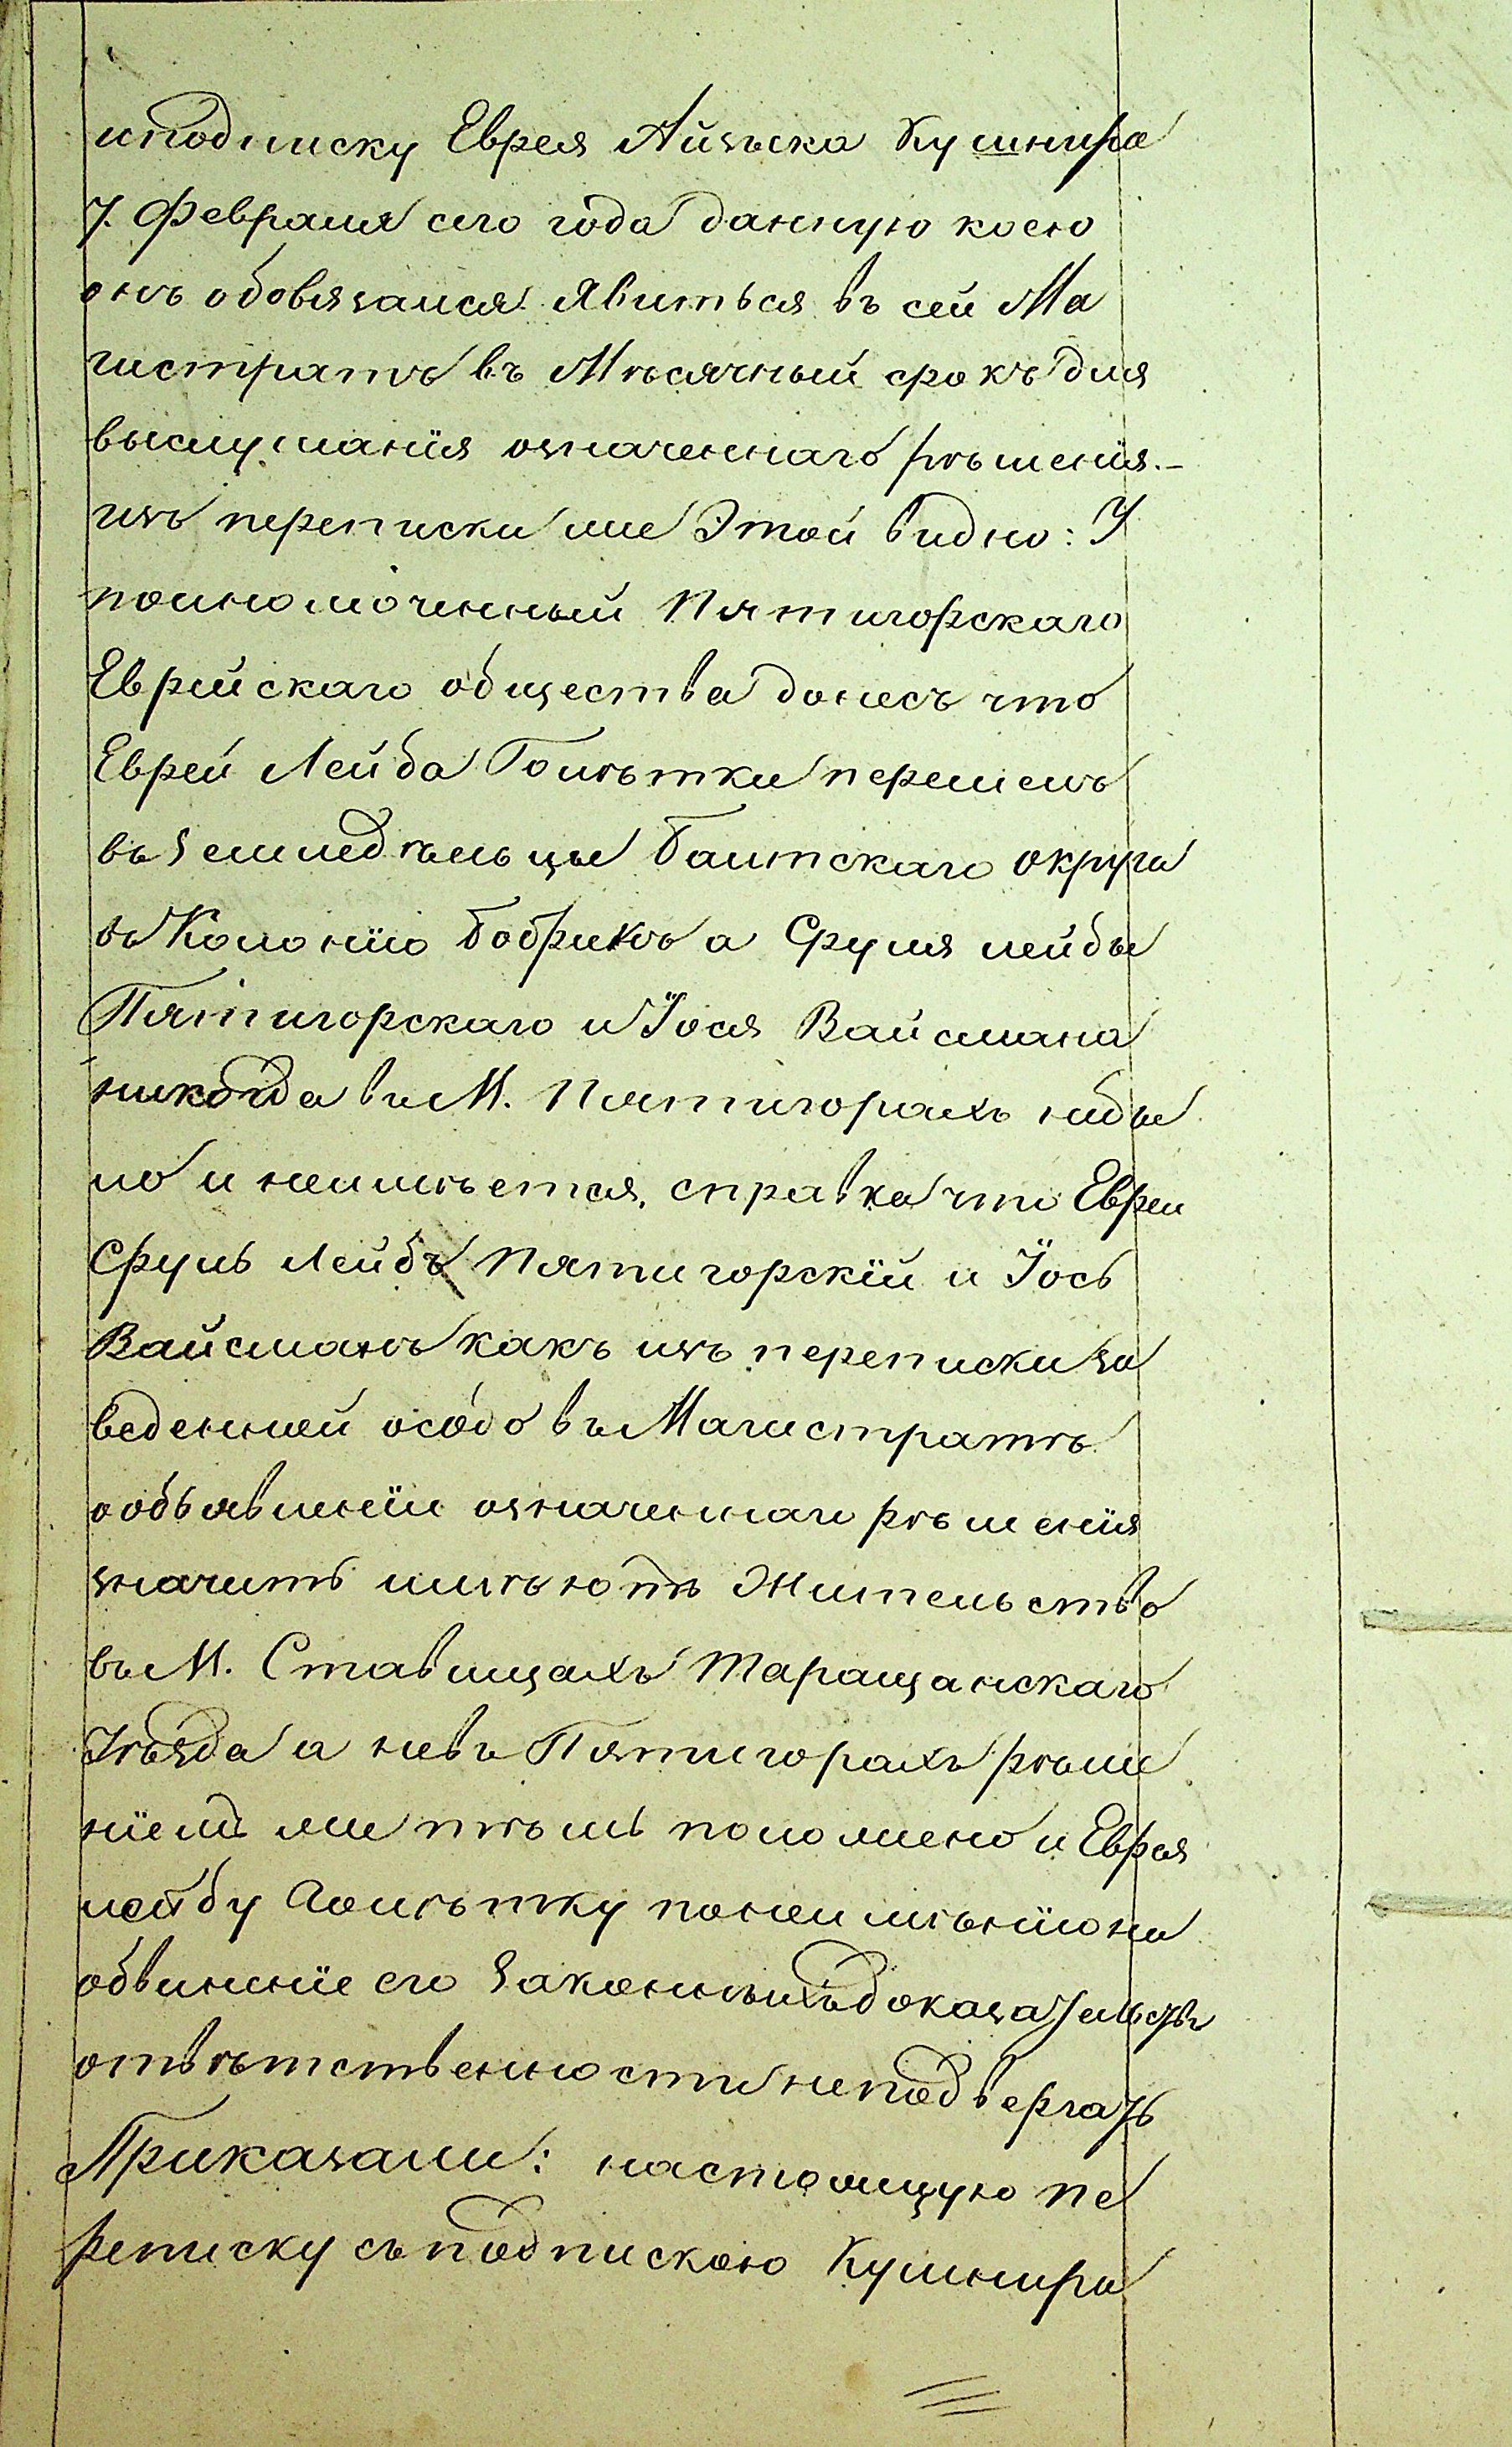 иподписку Еврея Айзъска Кушнира
7. Февраля сего года данную коею
онъ обовязался явиться въ сей Ма
гистратъ въ Мѣсячный срокъ для
выслушанія означеннаго рѣшенія.–
изъ переписки же Этой видно: У
полномоченный Пятигорскаго
Еврейскаго общества донесъ что
Еврей Лейба Голѣтки перешелъ
въ земледѣльцы Балтскаго округа
въ Колонію Бобрикъ а Сруля лейбы
Пятигорскаго и Іося Вайсмана
никогда въ М. Пятигорахъ небы
ло и неимѣется, справка что Евреи
Сруль Лейбъ Пятигорскій и Іось
Вайсманъ какъ изъ переписки за
веденной особо въ Магистратѣ
о объявленіи означеннаго рѣшенія
значитъ имѣютъ Жительство
въ М. Ставищахъ Таращанскаго
Уѣзда а невъ Пятигорахъ рѣше
ніемъ же тѣмъ положено и Еврея
лейбу Голѣтку понеимѣнію на
обвиненіе его законныхъ доказательствъ
отвѣтственности неподвергать
Приказали: настоящую пе
реписку съ подпискою Кушнира